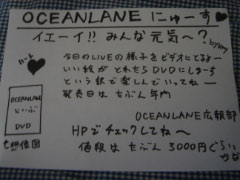 OCEANLANE にゅーす
イエーイ!! みんな元気〜?
今日のLIVEの様子をビデオにてるよー
いい絵がとれたらDVDにしまーす
という訳で楽しんでいってねー
発売日はたぶん年内
OCEANLANE広報部
HPでチェックしてね〜
値段は たぶん 3000円ぐらい
OCEANLANE
らいぶ
DVD